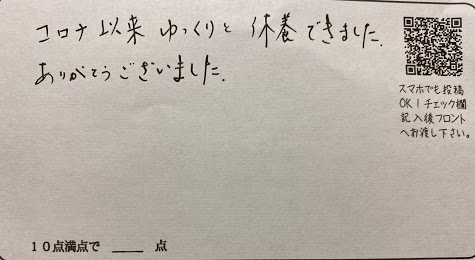 コロナ以来 ゆっくりと 休養できました.
ありがとうございました.
スマホでも投稿
OK！チェック欄
記入後フロント
へお渡し下さい。
１０点満点で ____ 点